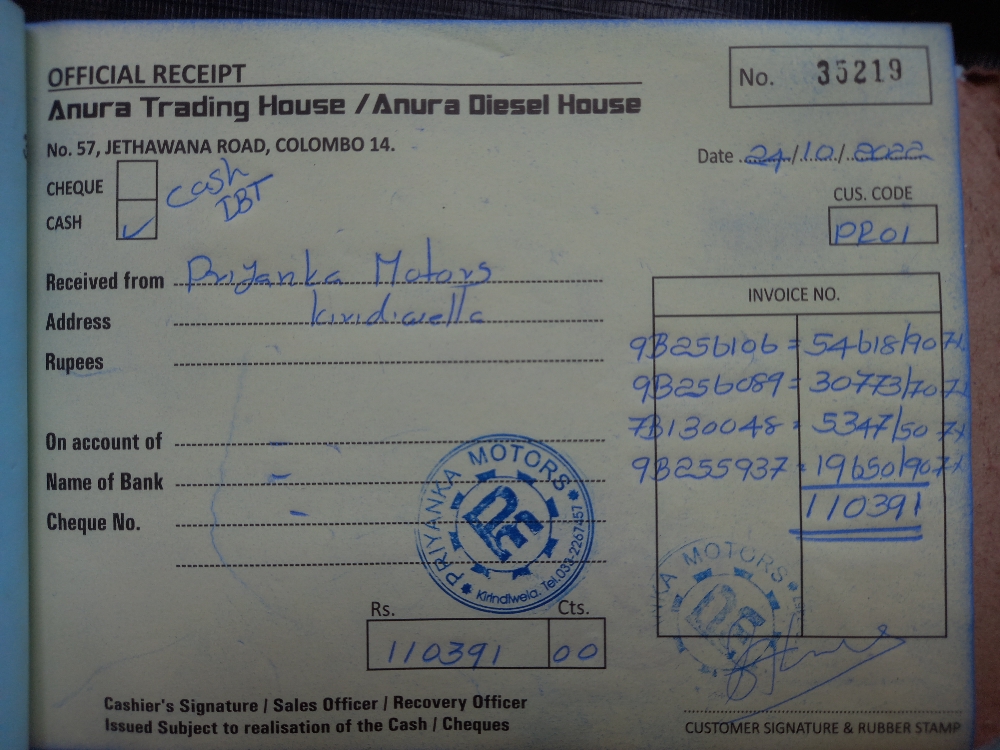 OFFICIAL RECEIPT
No. 35219
Anura Trading House / Anura Diesel House
No. 57, JETHAWANA ROAD, COLOMBO 14.
Date 24/10/2022
CHEQUE
Cash
IBT
CASH ✓
CUS. CODE
PR01
Received from Priyanka Motors
Address kiridiwella
Rupees
INVOICE NO.
9B256106 = 54618/90
9B256089 = 30773/70
7B130048 = 5347/50
9B255937 = 19650/90
110391
On account of -
Name of Bank -
Cheque No. -
PRIYANKA MOTORS
Kirindiwela. Tel.033-2267457
MOTORS
Rs. Cts.
110391 00
Cashier's Signature / Sales Officer / Recovery Officer
Issued Subject to realisation of the Cash / Cheques
CUSTOMER SIGNATURE & RUBBER STAMP